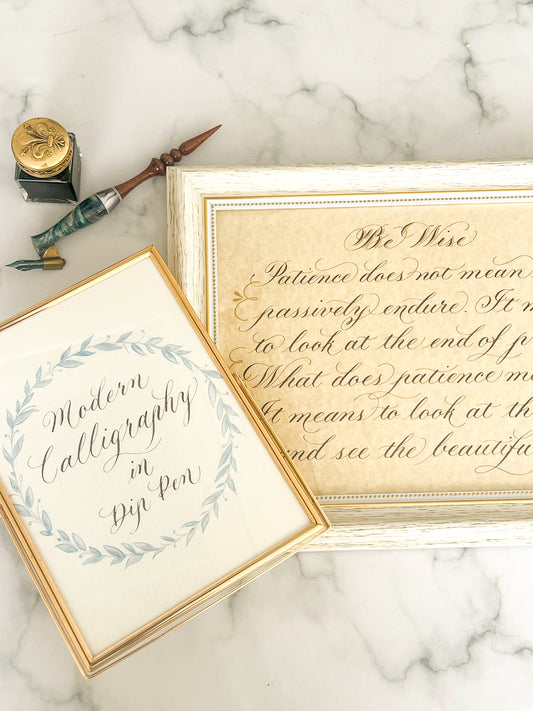 Be Wise
Patience does not mean
passively endure. It m
to look at the end of p
What does patience me
It means to look at th
and see the beautiful
Modern
Calligraphy
in
Dip Pen